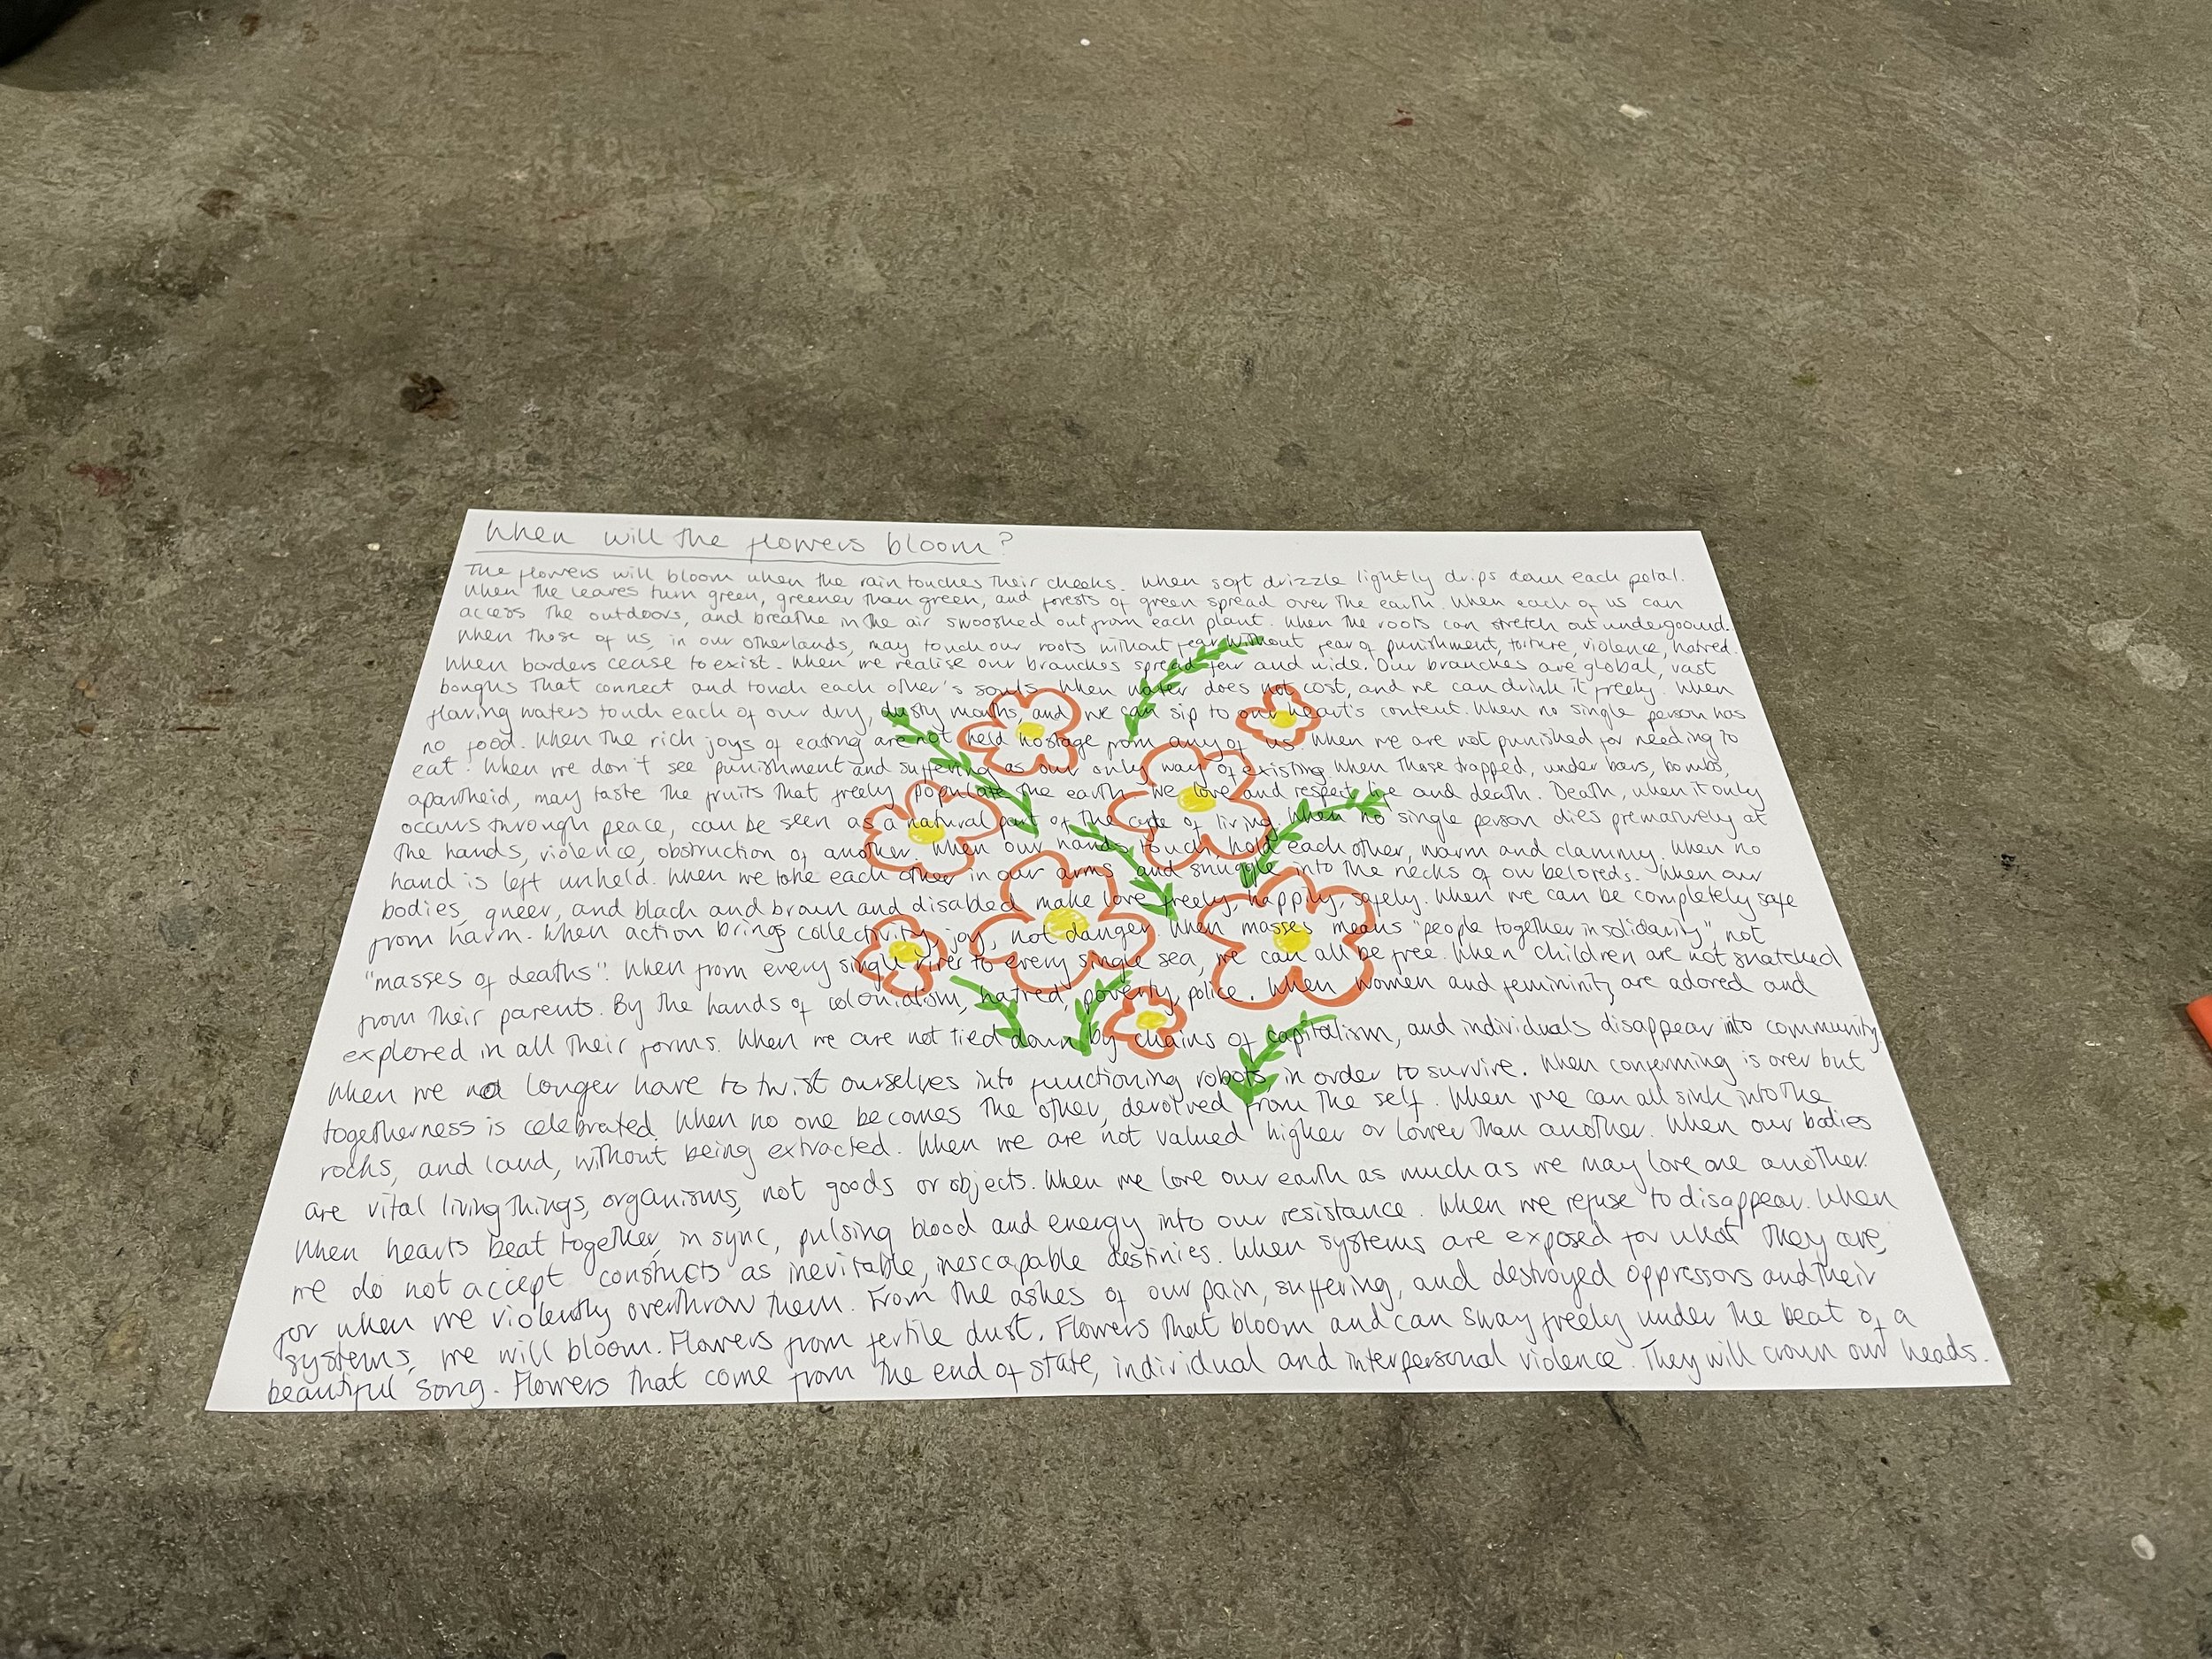 When will the flowers bloom?
The flowers will bloom when the rain touches their cheeks. When soft drizzle lightly drips down each petal.
When the leaves turn green, greener than green, and forests of green spread over the earth. When each of us can
access the outdoors, and breathe in the air swooshed out from each plant. When the roots can stretch out underground.
When those of us, in our otherlands, may touch our roots without fear. Without fear of punishment, torture, violence, hatred.
When borders cease to exist. When we realise our branches spread far and wide. Our branches are global, vast
boughs that connect and touch each other's souls. When water does not cost, and we can drink it freely. When
flowing waters touch each of our dry, dusty mouths, and we can sip to our heart's content. When no single person has
no food. When the rich joys of eating are not held hostage from any of us. When we are not punished for needing to
eat. When we don't see punishment and suffering as our only way of existing. When those trapped, under bars, bombs,
apartheid, may taste the fruits that freely populate the earth. We love and respect life and death. Death, when it only
occurs through peace, can be seen as a natural part of the cycle of living. When no single person dies prematurely at
the hands, violence, obstruction of another. When our hands touch, hold each other, warm and clammy. When no
hand is left unheld. When we take each other in our arms and snuggle into the necks of our beloveds. When our
bodies, queer, and black and brown and disabled make love freely, happily, safely. When we can be completely safe
from harm. When action brings collectivity, joy, not danger. When masses means "people together in solidarity" not
"masses of deaths". When from every single river to every single sea, we can all be free. When children are not snatched
from their parents. By the hands of colonialism, hatred, poverty, police. When women and femininity are adored and
explored in all their forms. When we are not tied down by chains of capitalism, and individuals disappear into community.
When we no longer have to twist ourselves into functioning robots, in order to survive. When conforming is over but
togetherness is celebrated. When no one becomes the other, devolved from the self. When we can all sink into the
rocks, and land, without being extracted. When we are not valued higher or lower than another. When our bodies
are vital living things, organisms, not goods or objects. When we love our earth as much as we may love one another.
When hearts beat together, in sync, pulsing blood and energy into our resistance. When we refuse to disappear. When
we do not accept constucts as inevitable, inescapable destinies. When systems are exposed for what they are,
for when we violently overthrow them. From the ashes of our pain, suffering, and destroyed oppressors and their
systems, we will bloom. Flowers from fertile dust. Flowers that bloom and can sway freely under the beat of a
beautiful song. Flowers that come from the end of state, individual and interpersonal violence. They will crown our heads.